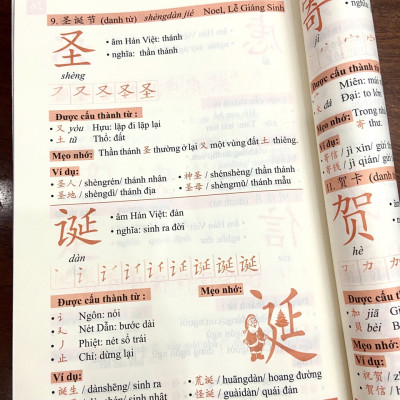 9. 圣诞节 (danh từ) shèngdàn jié Noel, Lễ Giáng Sinh
圣
• âm Hán Việt: thánh
• nghĩa: thần thánh
shèng
フ 又 圣 圣
Được cấu thành từ :
• 又 yòu Hựu: lặp đi lặp lại
• 土 tǔ Thổ: đất
Mẹo nhớ: Thần thánh 圣 thường ở lại 又 một vùng đất 土 thiêng.
Ví dụ:
• 圣人 / shèngrén/ thánh nhân • 神圣 / shénshèng/ thần thánh
• 圣地 / shèngdì/ thánh địa • 圣母 / shèngmǔ/ thánh mẫu
诞
• âm Hán Việt: đản
• nghĩa: sinh ra đời
dàn
Được cấu thành từ :
Mẹo nhớ:
• 讠 Ngôn: nói
• 廴 Nét Dẫn: bước dài
• 丿 Phiệt: nét sổ trái
• 止 Chỉ: dừng lại
诞
Ví dụ:
诞生 / dànshēng/ sinh ra
• 荒诞 / huāngdàn/ hoang đường
• 怪诞 / guàidàn/ quái đản
寄
jì
Miên: mái
大 dà Đại: to lớn
Mẹo nhớ: Trong nhà
寄 thư.
Ví dụ:
• 寄信 / jì xìn/ gửi th
• 寄钱 / jì qián/ gửi
11. 贺卡 (danh
贺
hè
加 jiā
贝 bèi
Mẹo nhớ:
Ví dụ: